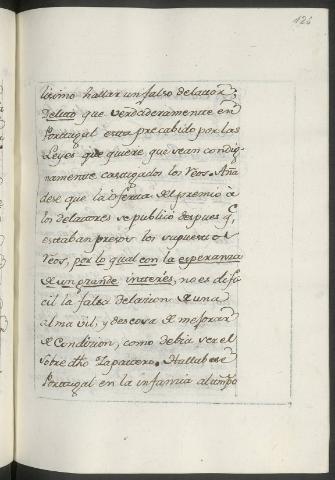 126
lisimo hallar un falso delator.
Delito que verdaderamente en
Portugal esta precabido por las
Leyes que quiere que sean condig-
namente castigados los Reos. Aña
dese que la oferta del premio à
los delatores se publicó despues q.
estaban presos los supuestos
Reos, por lo qual con la esperanza
de un grande interés, no es difi-
cil la falsa delacion de una
alma vil, y deseosa de mejorar
de Condicion, como debia ser el
sobre dho Zapatero. Hallabase
Portugal en la infamia al tmpo